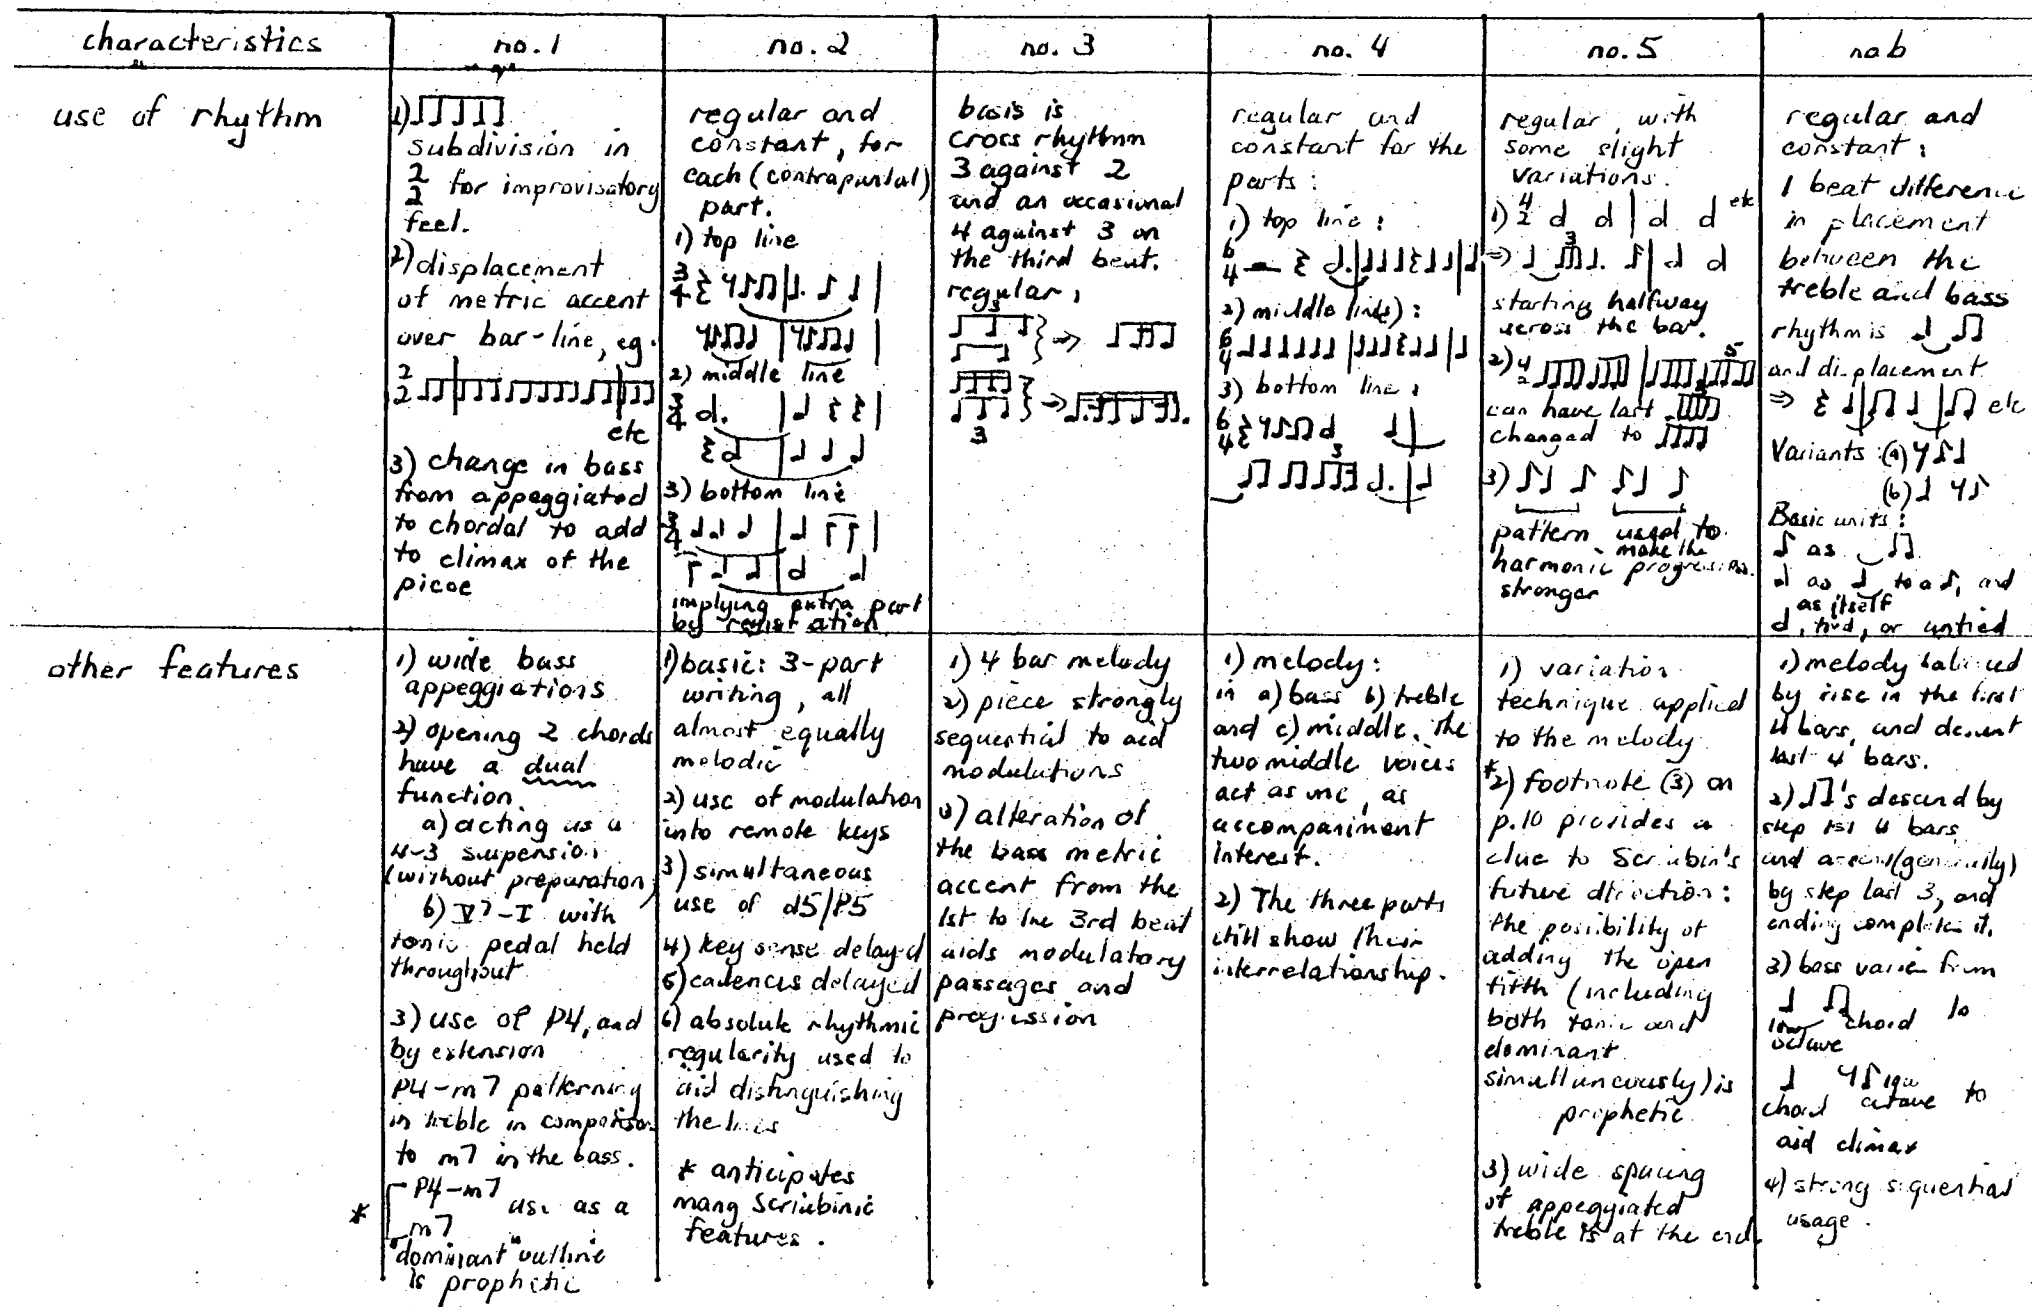 characteristics
no. 1
no. 2
no. 3
no. 4
no. 5
no 6
use of rhythm
1)
subdivision in
2/2 for improvisatory
feel.
2) displacement
of metric accent
over bar-line, eg.
2/2
etc
3) change in bass
from appeggiated
to chordal to add
to climax of the
piece
regular and
constant, for
each (contrapuntal)
part.
1) top line
3/4
2) middle line
3/4
3) bottom line
3/4
implying extra part
by registration
basis is
cross rhythm
3 against 2
and an occasional
4 against 3 on
the third beat.
regular,
3
3
regular and
constant for the
parts:
1) top line:
6/4
2) middle line(s):
6/4
3) bottom line:
6/4
3
regular, with
some slight
variations.
1) 4/2 etc
3
starting halfway
across the bar.
2) 4/2 5
can have last
changed to
3)
pattern used to
make the
harmonic progression
stronger
regular and
constant:
1 beat difference
in placement
between the
treble and bass
rhythm is
and displacement
⇒ etc
Variants: (a)
(b)
Basic units:
as
as to a, and
as itself
tied, or untied
other features
1) wide bass
appeggiations
2) opening 2 chords
have a dual
function.
a) acting as a
4-3 suspension
(without preparation)
b) V7-I with
tonic pedal held
throughout
3) use of P4, and
by extension
P4-m7 patterning
in treble in comparison
to m7 in the bass.
* P4-m7 use as a
m7
"dominant" outline
is prophetic
1) basic: 3-part
writing, all
almost equally
melodic
2) use of modulation
into remote keys
3) simultaneous
use of d5/P5
4) key sense delayed
5) cadences delayed
6) absolute rhythmic
regularity used to
aid distinguishing
the lines
* anticipates
many Scriabinic
features.
1) 4 bar melody
2) piece strongly
sequential to aid
modulations
3) alteration of
the bass metric
accent from the
1st to the 3rd beat
aids modulatory
passages and
progression
1) melody:
in a) bass b) treble
and c) middle. the
two middle voices
act as one, as
accompaniment
interest.
2) The three parts
still show their
interrelationship.
1) variation
technique applied
to the melody
*2) footnote (3) on
p.10 provides a
clue to Scriabin's
future direction:
the possibility of
adding the open
fifth (including
both tonic and
dominant
simultaneously) is
prophetic
3) wide spacing
of appeggiated
treble is at the end.
1) melody balanced
by rise in the first
4 bars, and descent
last 4 bars.
2) 's descend by
step 1st 4 bars
and ascend (generally)
by step last 3, and
ending completes it.
3) bass varies from
low chord to
octave
chord octave to
aid climax
4) strong sequential
usage.